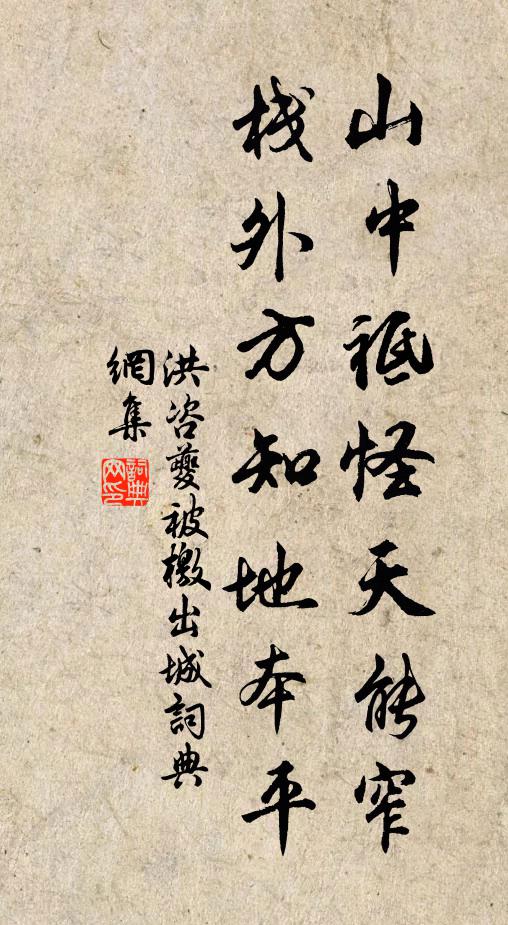 山中祗怪天能窄
棧外方知地本平
洪咨夔被檄出城詞典
網集
詞典
网印